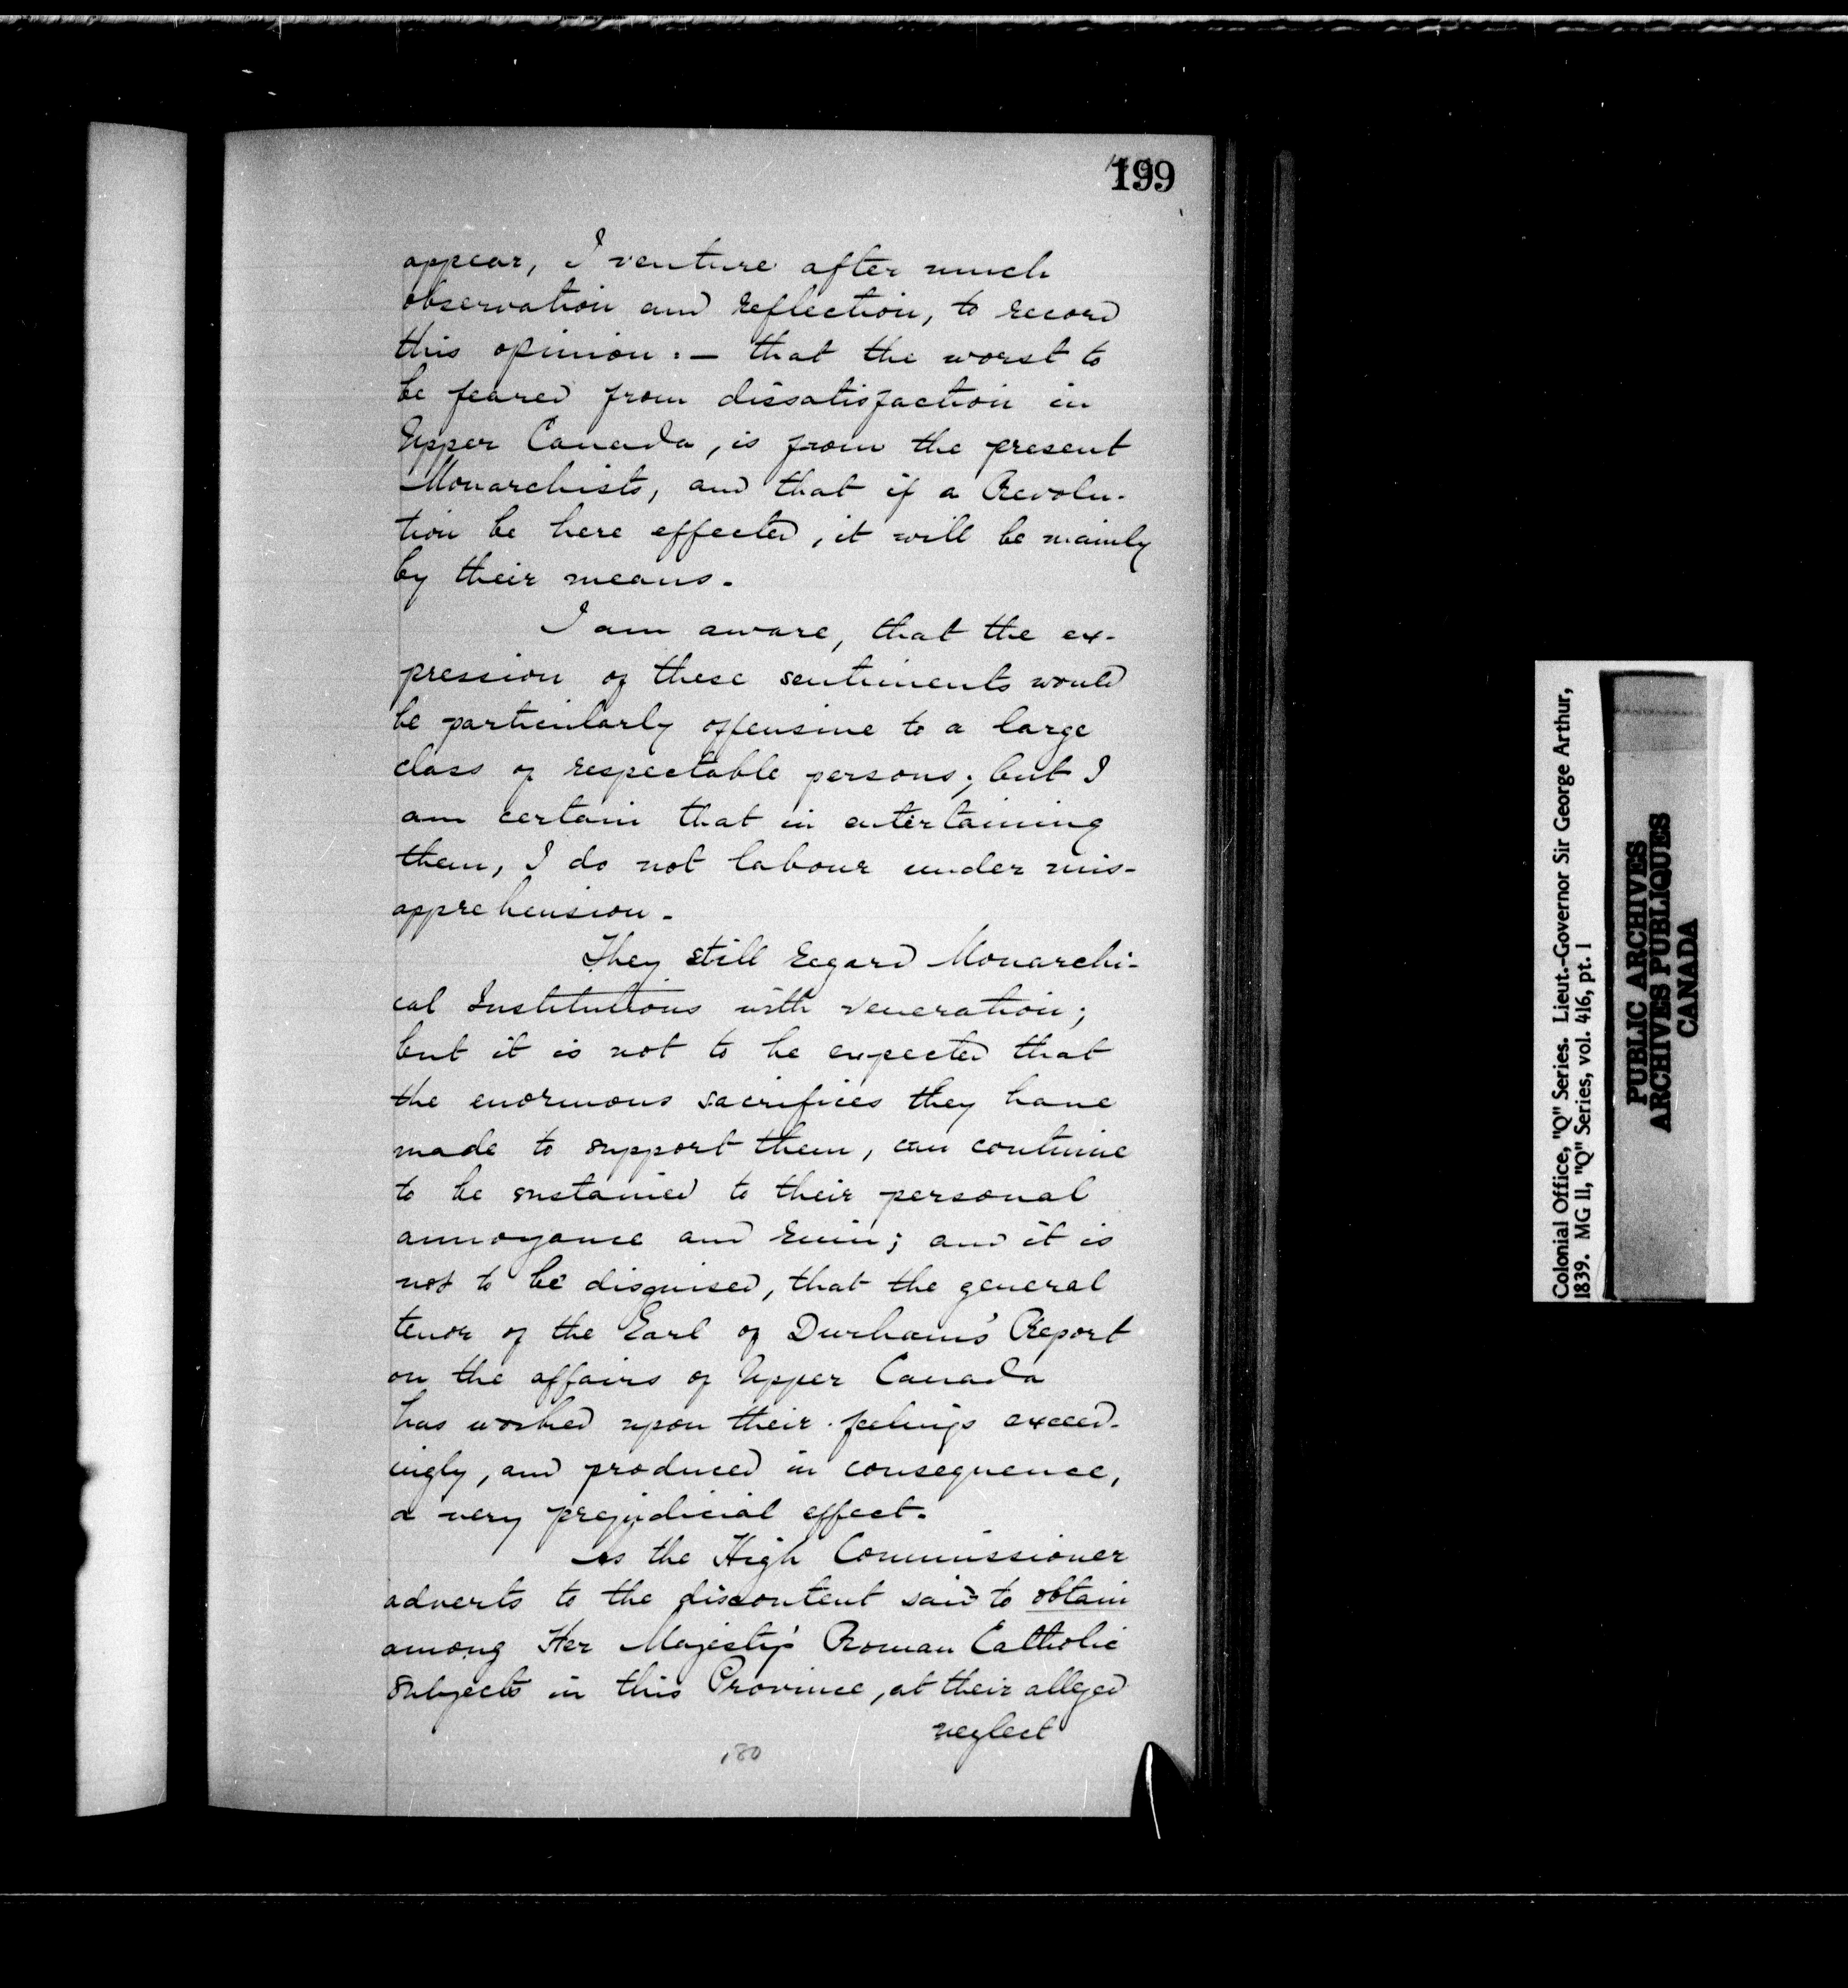 199
appear, I venture after much
observation and reflection, to record
this opinion :— that the worst to
be feared from dissatisfaction in
Upper Canada, is from the present
Monarchists, and that if a Revolu-
tion be here effected, it will be mainly
by their means.
I am aware, that the ex-
pression of these sentiments would
be particularly offensive to a large
class of respectable persons; but I
am certain that in entertaining
them, I do not labour under mis-
apprehension.
They still regard Monarchi-
cal Institutions with veneration;
but it is not to be expected that
the enormous sacrifices they have
made to support them, can continue
to be sustained to their personal
annoyance and ruin; and it is
not to be disguised, that the general
tenor of the Earl of Durham's Report
on the affairs of Upper Canada
has worked upon their feelings exceed-
ingly, and produced in consequence,
a very prejudicial effect.
As the High Commissioner
adverts to the discontent said to obtain
among Her Majesty's Roman Catholic
Subjects in this Province, at their alleged
neglect
180
Colonial Office, "Q" Series. Lieut.-Governor Sir George Arthur,
1839. MG 11, "Q" Series, vol. 416, pt. 1
PUBLIC ARCHIVES
ARCHIVES PUBLIQUES
CANADA